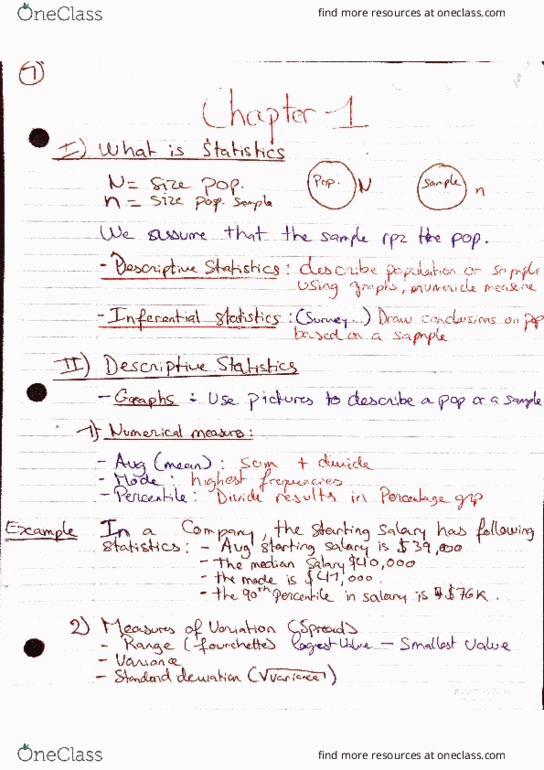 OneClass
find more resources at oneclass.com
1
Chapter-1
I) What is Statistics
N = Size pop.
Pop. N
Sample n
n = size pop. sample
We assume that the sample rpz the pop.
- Descriptive Statistics : describe population or sample
using graphs, numericle measure
- Inferential statistics : (Survey...) Draw conclusions on pop
based on a sample
II) Descriptive Statistics
- Graphs : Use pictures to describe a pop or a sample
1) Numerical measure:
- Avg (mean) : sum + divide
- Mode : highest frequencies
- Percentile : Divide results in Percentage grp
Example In a Company, the starting salary has following
statistics : - Avg starting salary is $39,000
- the median salary $40,000
- the mode is $41,000.
- the 90th Percentile in salary is $76K.
2) Measures of Variation (Spread)
- Range (-fourchette) largest value - Smallest value
- Variance
- Standard deviation (√variance)
OneClass
find more resources at oneclass.com